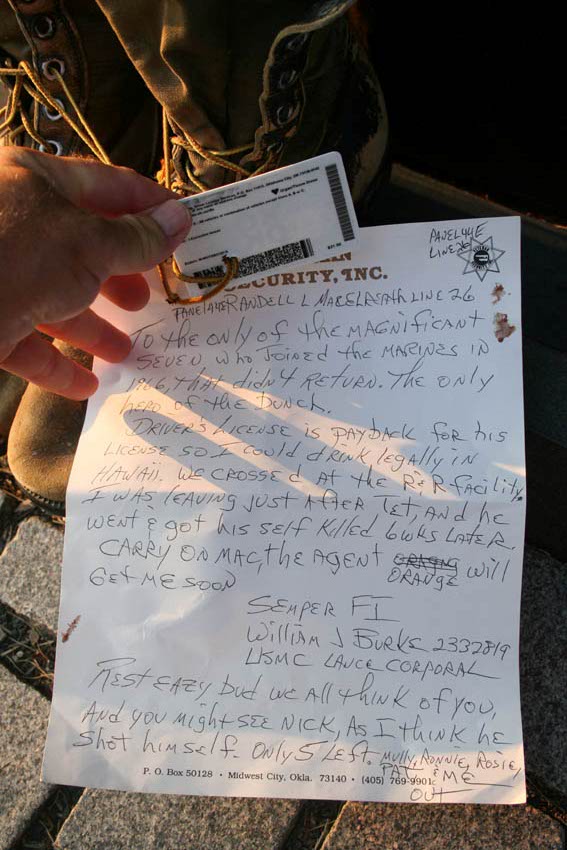 PANEL 44E
LINE 26
SECURITY, INC.
PANEL 44E RANDELL L MACELREATH LINE 26
TO the only of the MAGNIFICANT
SEVEN who JOINED the MARINES IN
1966, THAT didN'T RETURN. The only
hero of the bunch.
DRIVER'S LICENSE is PAYbACK for his
LICENSE so I could dRINK legally iN
HAWAII. WE CROSSEd AT the R&R fACILITY.
I WAS leAVING JUST AFTER TET, ANd he
WENT & got his self Killed 6wks LATER.
CARRY ON MAC, the AGENT ORANGE will
GET ME SOON
SEMPER FI
William J BURKS 2332819
USMC LANCE CORPORAL
REST EAZY, but we All thINK of you,
ANd you might SEE NICK, As I thINK he
Shot himself. ONly 5 left. Mully, RONNIE, ROSIE,
PAT, & ME
OUT
P. O. Box 50128 • Midwest City, Okla. 73140 • (405) 769-9901